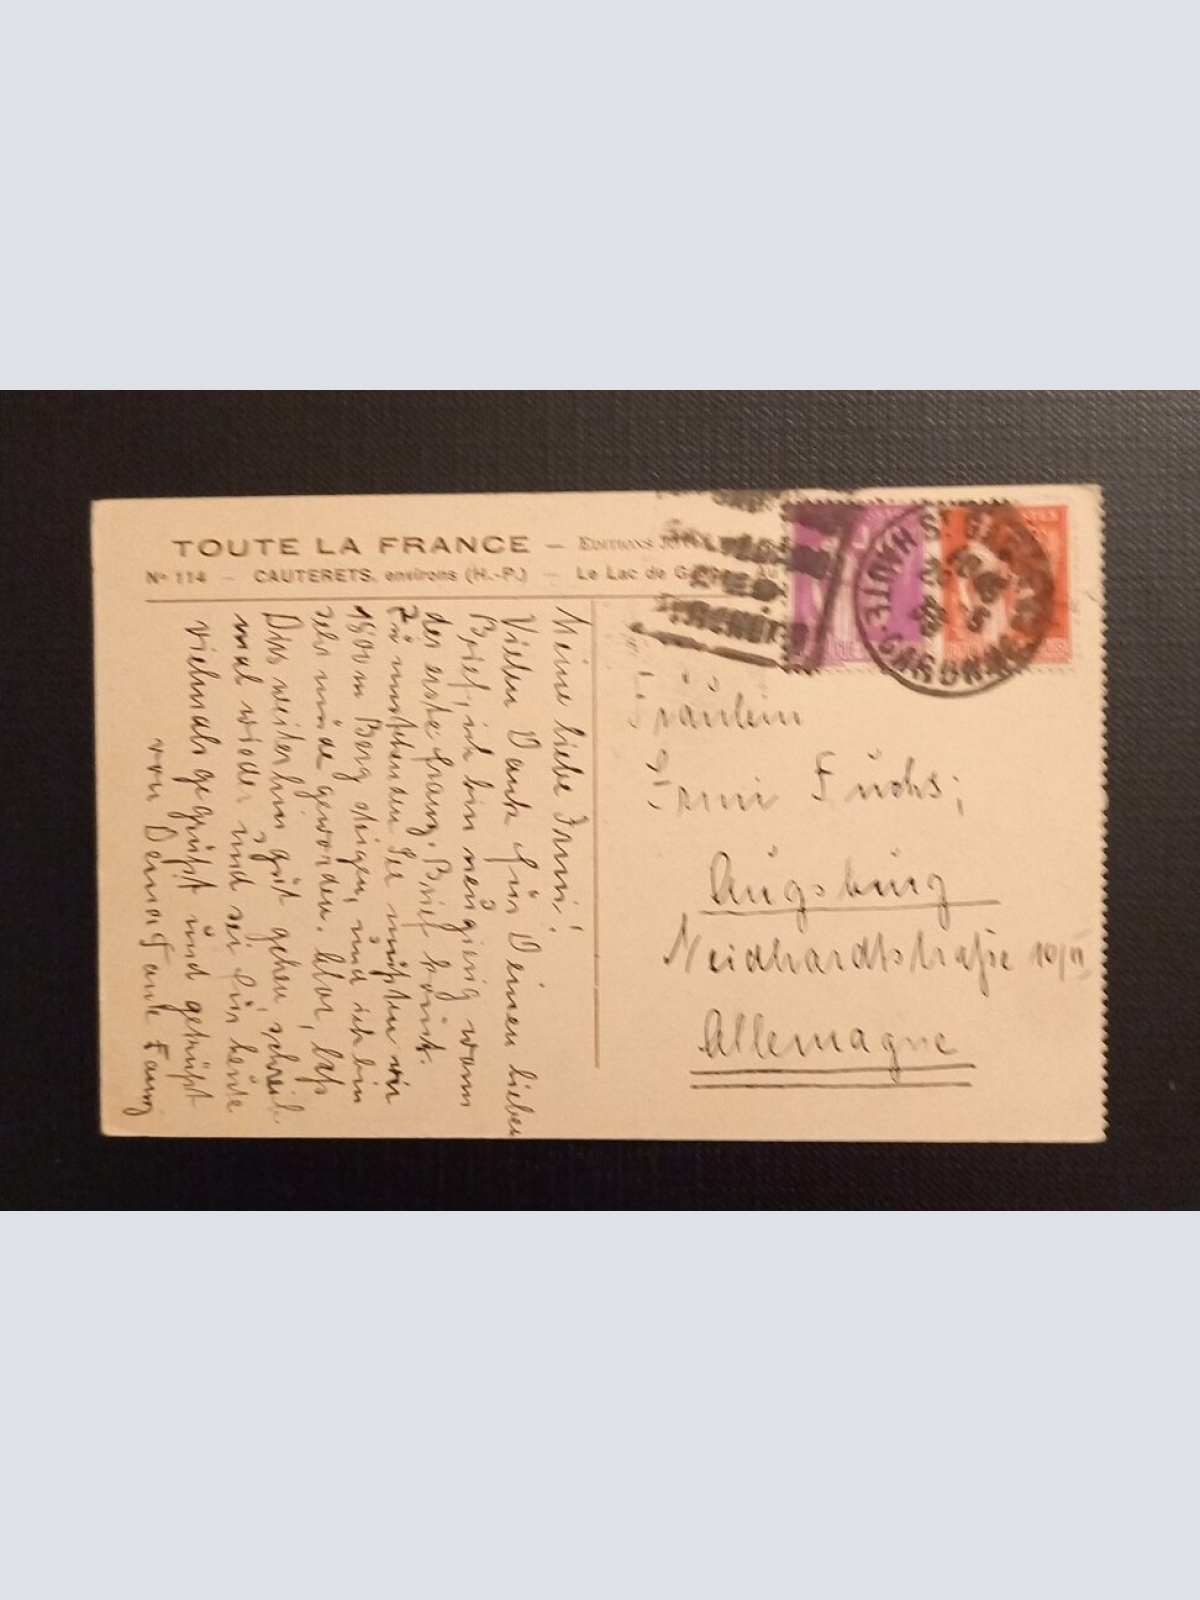 TOUTE LA FRANCE — Editions
Nº 114 — CAUTERETS, environs (H.-P.) — Le Lac de
Meine liebe Irmi!
Vielen Dank für Deinen lieben
Brief, ich bin neugierig wann
der erste franz. Brief kommt.
Zu umstehenden See mußten wir
m Berg steigen, und ich bin
sehr müde geworden. laß
Dirs weiterhin gut gehen, schreib
mal wieder und sei für heute
vielmals gegrüßt und geküßt
von Deiner Tante Fanny
Fräulein
Irmi Fuchs;
Augsburg
Neidhardtstraße 10/II
Allemagne
HAUTE